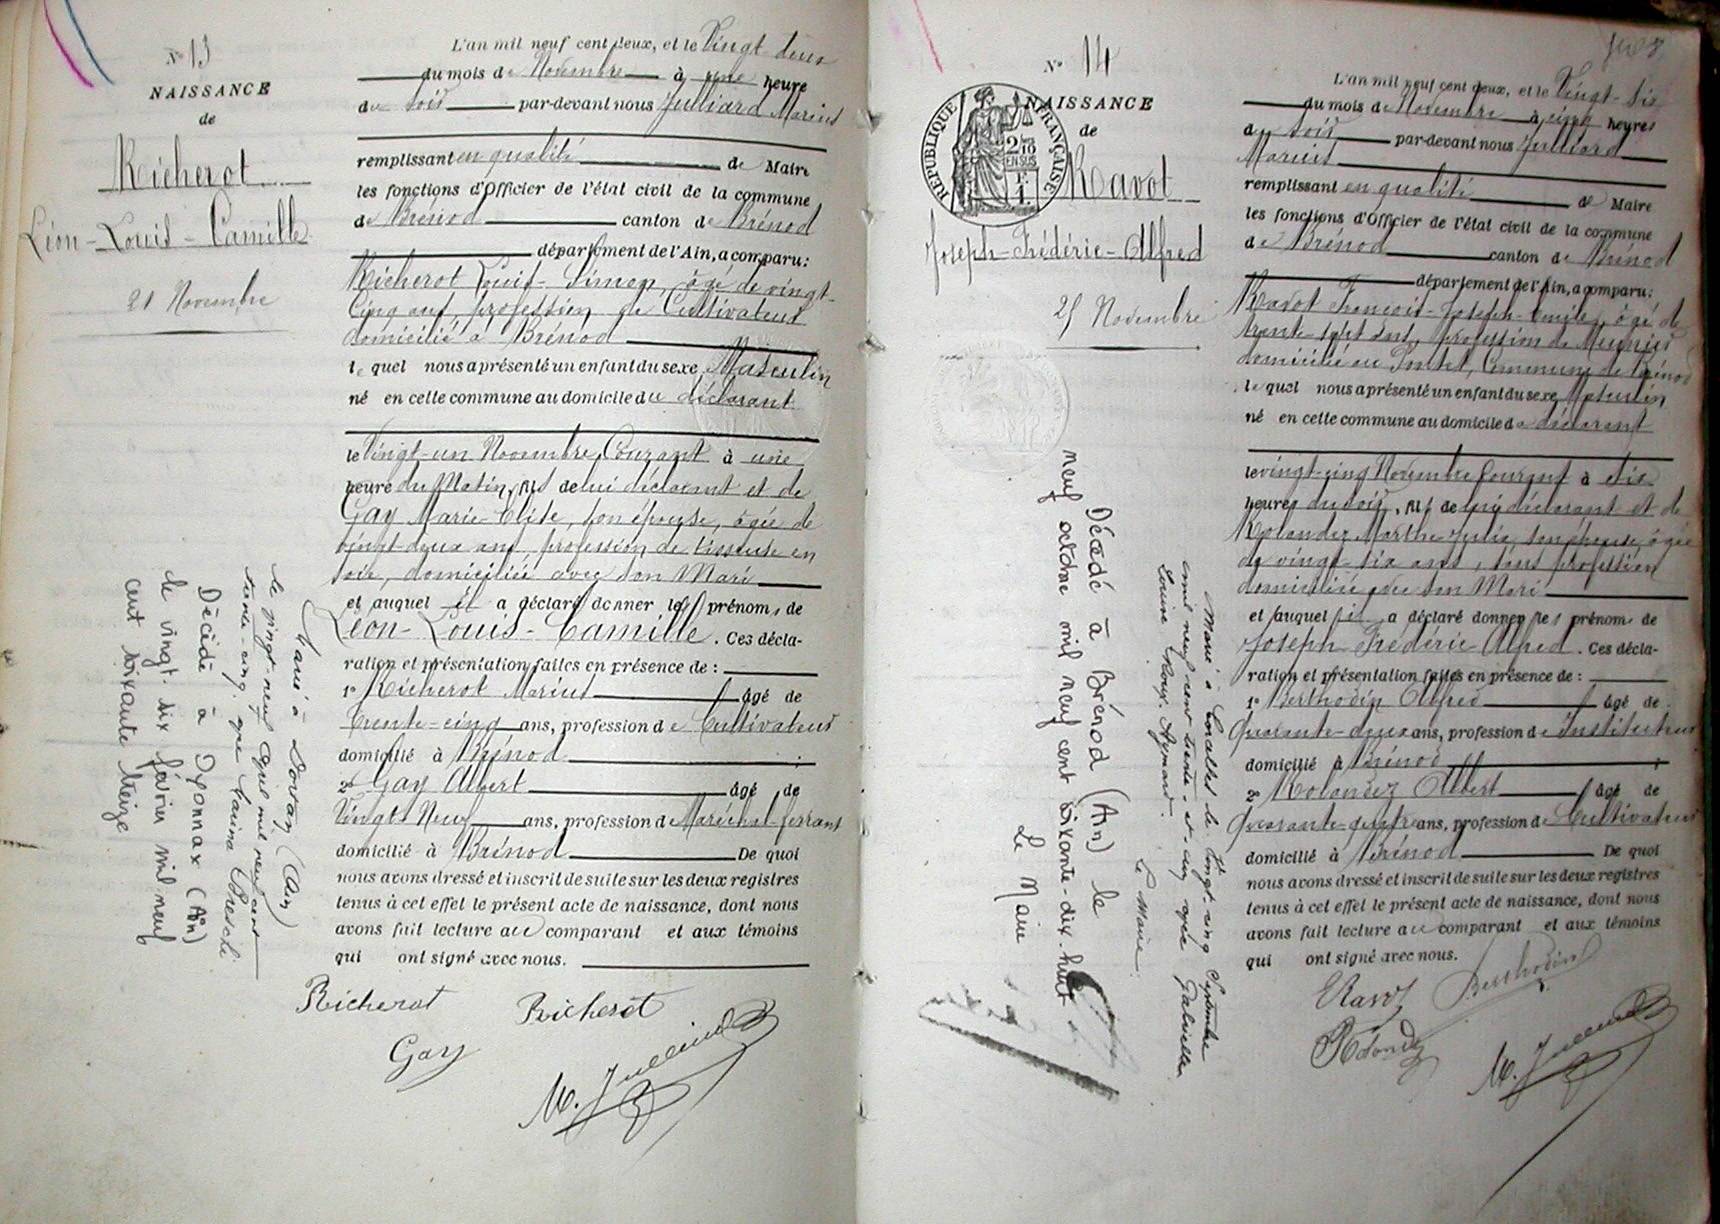 N° 13
NAISSANCE
de
Richerot
Léon-Louis-Camille
21 Novembre
L'an mil neuf cent deux, et le Vingt deux
du mois de Novembre à une heure
du soir par-devant nous Julliard Marius
remplissant en qualité de Maire
les fonctions d'Officier de l'état civil de la commune
de Brénod canton de Brénod
département de l'Ain, a comparu:
Richerot Louis-Simon, âgé de vingt-
cinq ans, profession de Cultivateur
domicilié à Brénod
lequel nous a présenté un enfant du sexe Masculin
né en cette commune au domicile du déclarant
le Vingt-un Novembre Courant à une
heure du Matin, fils de lui déclarant et de
Gay Marie-Elise, son épouse, âgée de
vingt-deux ans, profession de tisseuse en
soie, domiciliée avec son Mari
et auquel il a déclaré donner les prénoms de
Léon-Louis-Camille. Ces décla-
ration et présentation faites en présence de :
1° Richerot Marius âgé de
trente-cinq ans, profession de Cultivateur
domicilié à Brénod ;
2° Gay Albert âgé de
Vingt-Neuf ans, profession de Maréchal-ferrant
domicilié à Brénod De quoi
nous avons dressé et inscrit de suite sur les deux registres
tenus à cet effet le présent acte de naissance, dont nous
avons fait lecture au comparant et aux témoins
qui ont signé avec nous.
Richerot Richerot
Gay
M. Julliard
Marié à Dortan (Ain)
le vingt-neuf avril mil neuf cent
trente-cinq avec Carina
Décédé à Oyonnax (Ain)
le vingt-six février mil neuf
cent soixante treize
N° 14
NAISSANCE
de
RÉPUBLIQUE FRANÇAISE
2/10 EN SUS
1 F.
Ravot
Joseph-Frédéric-Alfred
25 Novembre
L'an mil neuf cent deux, et le Vingt-six
du mois de Novembre à cinq heures
du soir par-devant nous Julliard
Marius
remplissant en qualité de Maire
les fonctions d'Officier de l'état civil de la commune
de Brénod canton de Brénod
département de l'Ain, a comparu:
Ravot François-Joseph-Emile, âgé de
trente-sept ans, profession de Meunier
domicilié au Pontet, Commune de Brénod
lequel nous a présenté un enfant du sexe Masculin
né en cette commune au domicile du déclarant
le vingt-cinq Novembre Courant à six
heures du soir, fils de lui déclarant et de
Marthe Julie, son épouse, âgée
de vingt-six ans, sans profession
domiciliée avec son Mari
et auquel il a déclaré donner les prénoms de
Joseph Frédéric Alfred. Ces décla-
ration et présentation faites en présence de :
1° Berthodin Alfred âgé de
Quarante-deux ans, profession de Instituteur
domicilié à Brénod ;
2° Albert âgé de
Quarante-quatre ans, profession de Cultivateur
domicilié à Brénod De quoi
nous avons dressé et inscrit de suite sur les deux registres
tenus à cet effet le présent acte de naissance, dont nous
avons fait lecture au comparant et aux témoins
qui ont signé avec nous.
Ravot Berthodin
M. Julliard
Marié à le vingt-cinq Septembre
mil neuf cent trente-et-un avec Gabrielle
Louise
Le Maire
Décédé à Brénod (Ain) le
neuf octobre mil neuf cent soixante-dix-huit
Le Maire